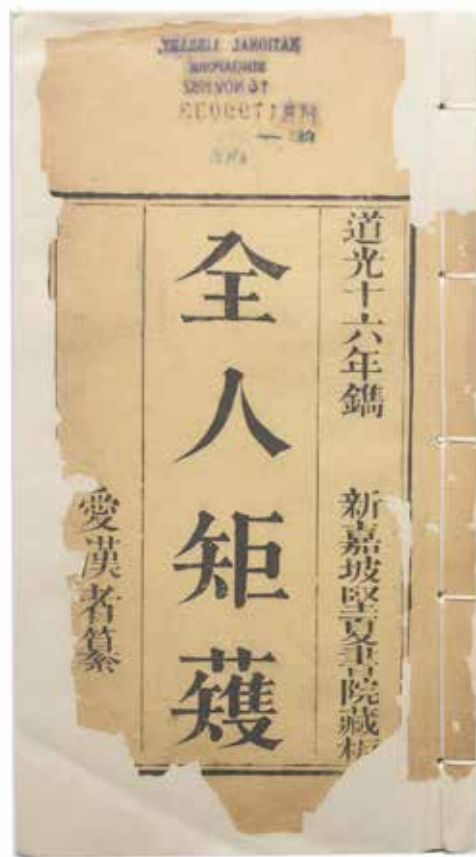 NATIONAL LIBRARY,
SINGAPORE
道光十六年鐫 新嘉坡堅夏書院藏板
全人矩矱
愛漢者纂